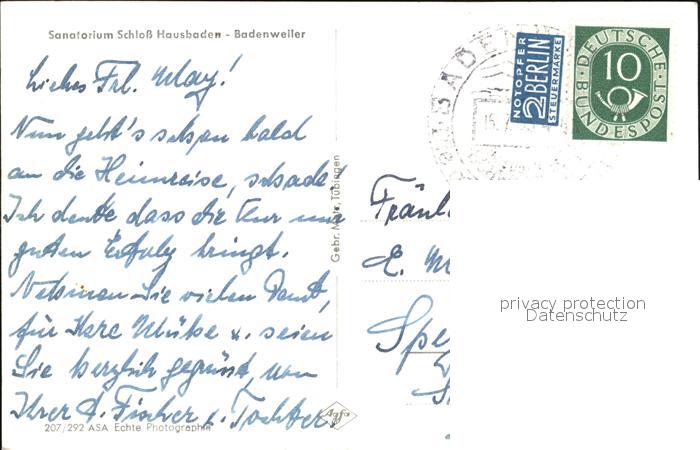 Sanatorium Schloß Hausbaden - Badenweiler
Liebes Frl. May!
Nun geht's schon bald
an die Heimreise, schade
Ich denke dass die Kur mir
guten Erfolg bringt.
Nehmen Sie vielen Dank,
für Ihre Mühe u. seien
Sie herzlich gegrüsst, von
Ihrer A. Fischer u. Tochter.
207/292 ASA Echte Photographie
Agfa
Gebr. Metz, Tübingen
BADEN
NOTOPFER
2 BERLIN
STEUERMARKE
DEUTSCHE
10
BUNDESPOST
Fräul
E. M
Spe
privacy protection
Datenschutz